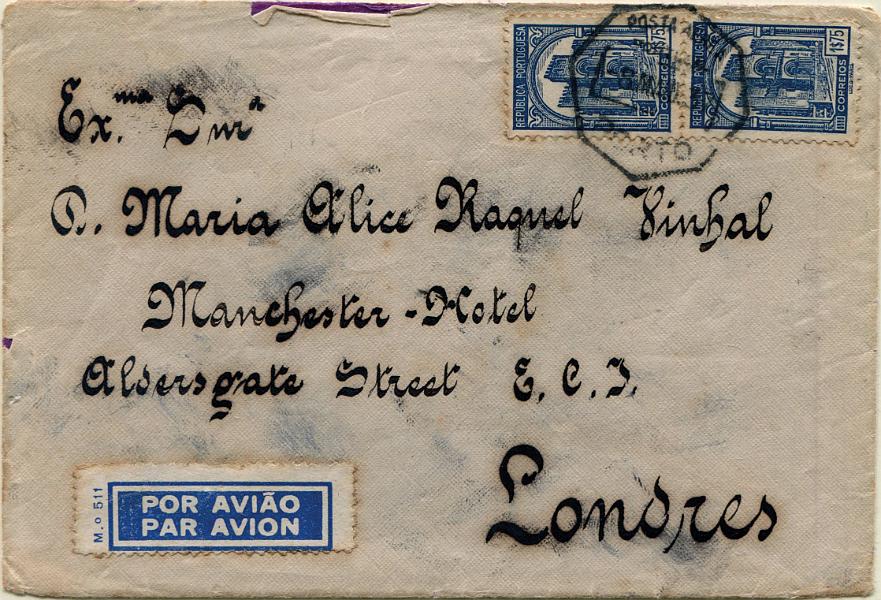 REPUBLICA PORTUGUESA
1$75
CORREIOS
REPUBLICA PORTUGUESA
1$75
CORREIOS
PORTO
Ex.ma Snr.a
D. Maria Alice Raquel Vinhal
Manchester-Hotel
Aldersgate Street E. C. I.
Londres
M.o 511
POR AVIÃO
PAR AVION